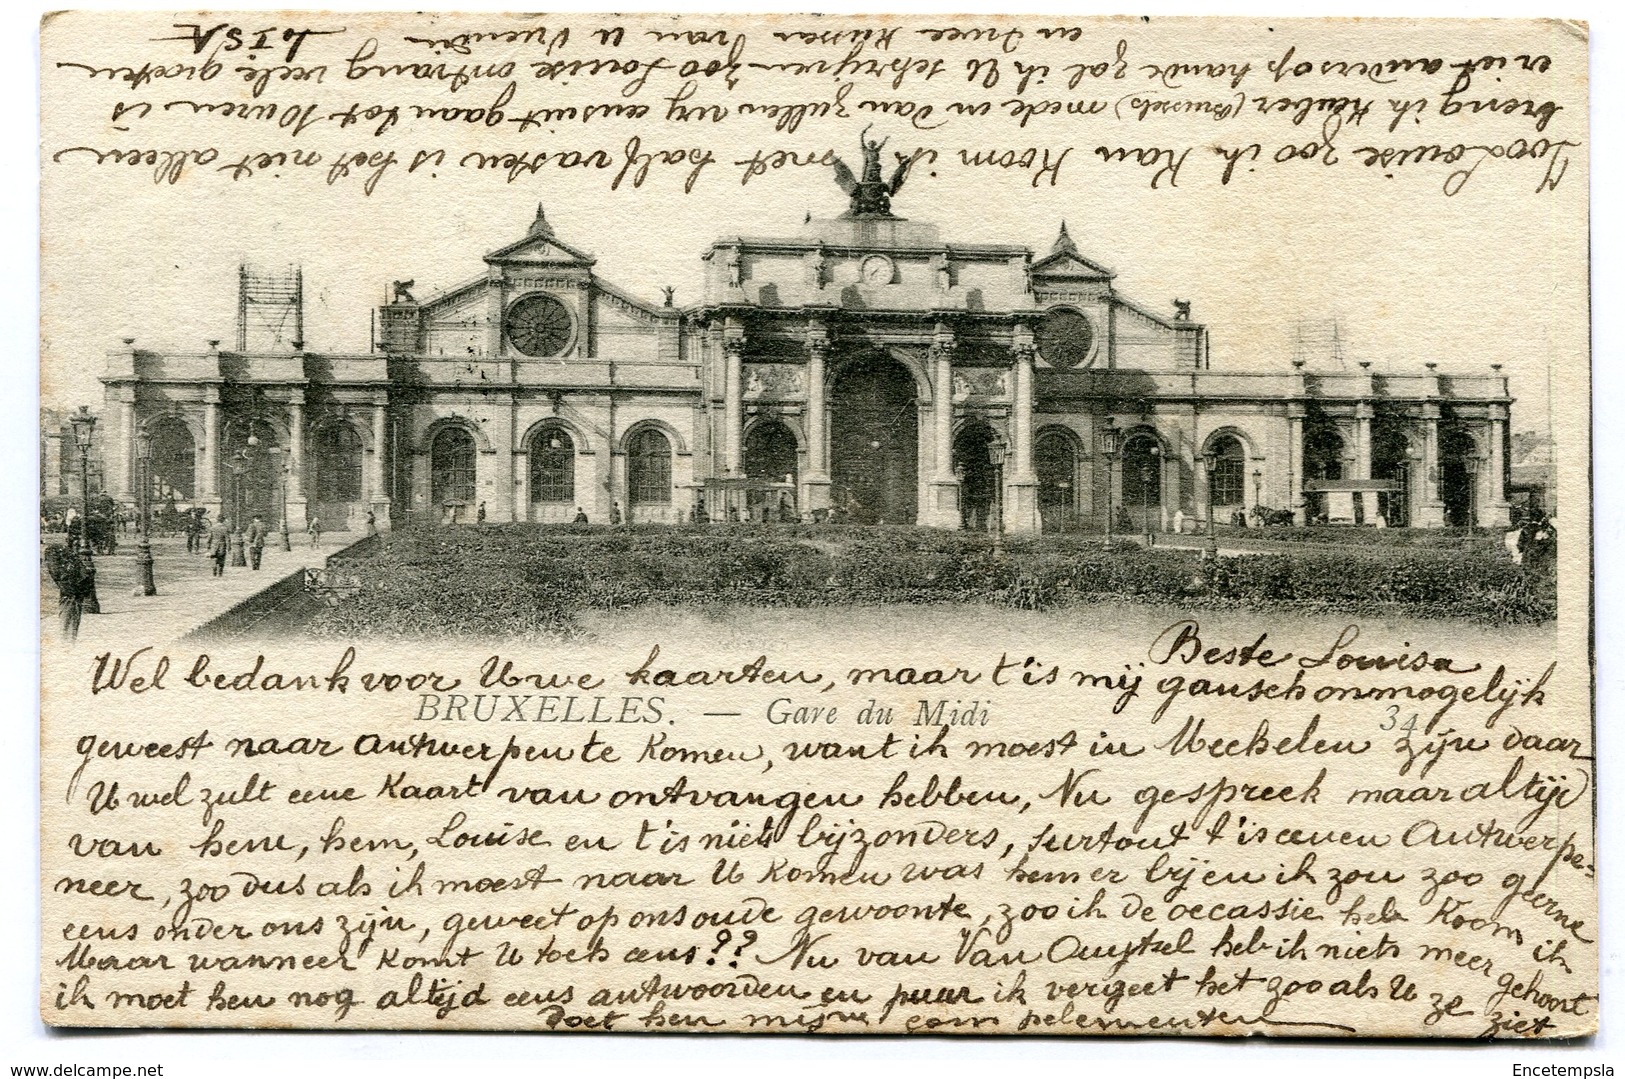 Beste Louisa
Wel bedankt voor Uwe kaarten, maar t'is mij gansch onmogelijk
BRUXELLES. — Gare du Midi
34
geweest naar Antwerpen te komen, want ik moest in Mechelen zijn daar
U wel zult eene Kaart van ontvangen hebben, Nu gespreek maar altijd
van hem, hem, Louise en t'is niets bijzonders, surtout t'is eenen Antwerpe-
neer, zoo dus als ik moest naar U komen was hem er bij en ik zou zoo geerne
eens onder ons zijn, geweet op ons oude gewoonte, zoo ik de occassie heb Koom ik
Maar wanneer komt U toch eens?? Nu van Van Ouytsel heb ik niets meer gehoort
ik moet hen nog altijd eens antwoorden en puur ik vergeet het zoo als U ze ziet
Doet hen mijne complementen
Zoo Louise zoo ik kan koom ik met half vasten is het niet alleen
breng ik Heuber (Brussels) mede en dan zullen wij eens uit gaan tot 10 uren is
er iet anders op hande zal ik U schrijven Zoo Louise ontvang vele groeten
en twee kussen van U Vriendin
LOISA
07/08/2018
Encetempsla